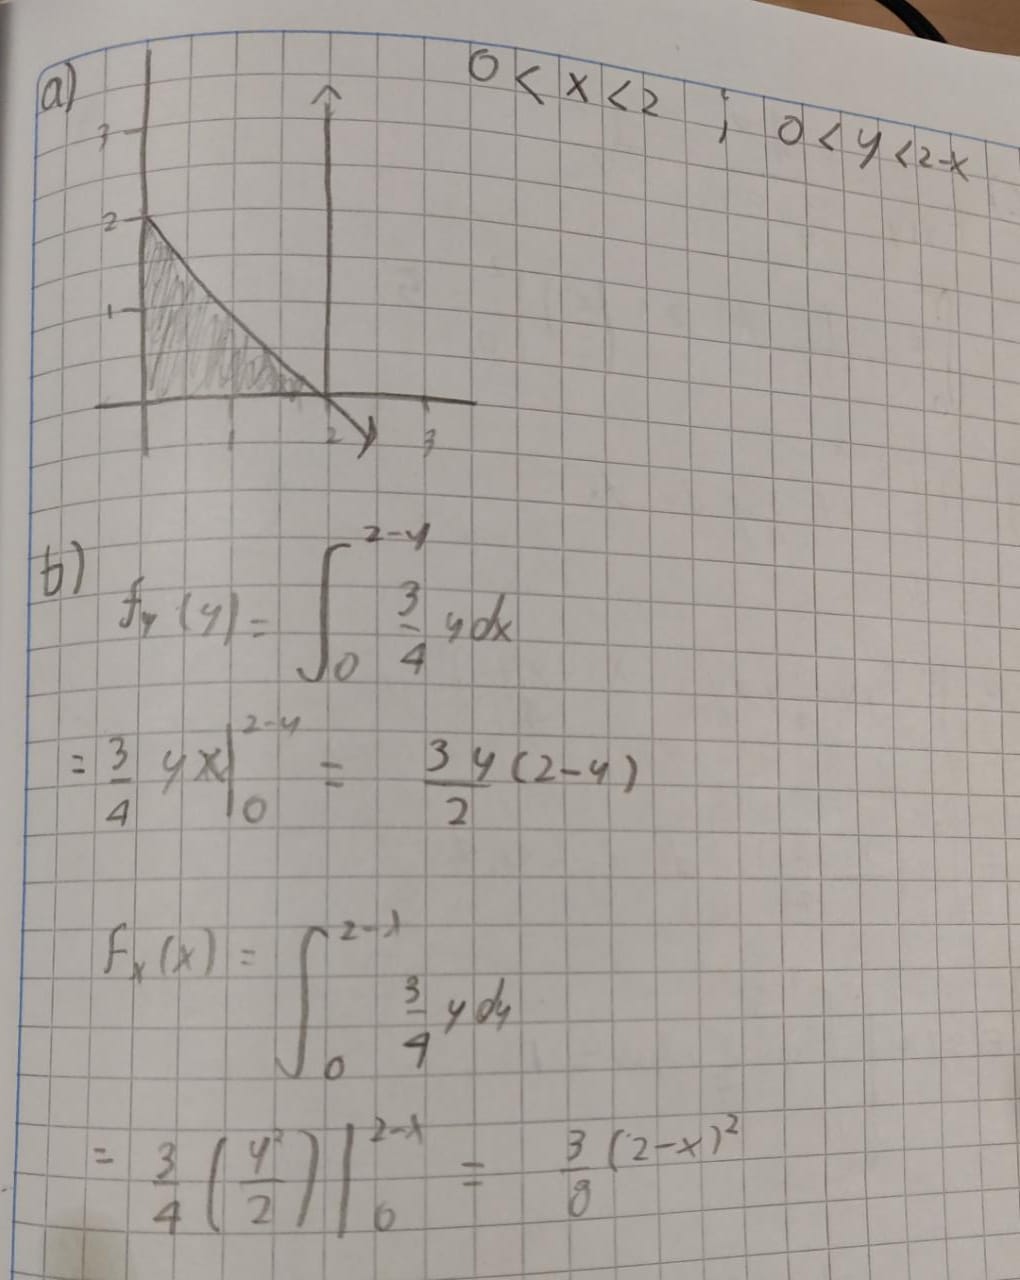 a)
0 < x < 2 ; 0 < y < 2-x
3
2
1
1 2 3
b)
f_y (y) = ∫_0^{2-y} 3/4 y dx
= 3/4 yx |_0^{2-y} = 3y/2 (2-y)
f_x (x) = ∫_0^{2-x} 3/4 y dy
= 3/4 (y²/2) |_0^{2-x} = 3/8 (2-x)²